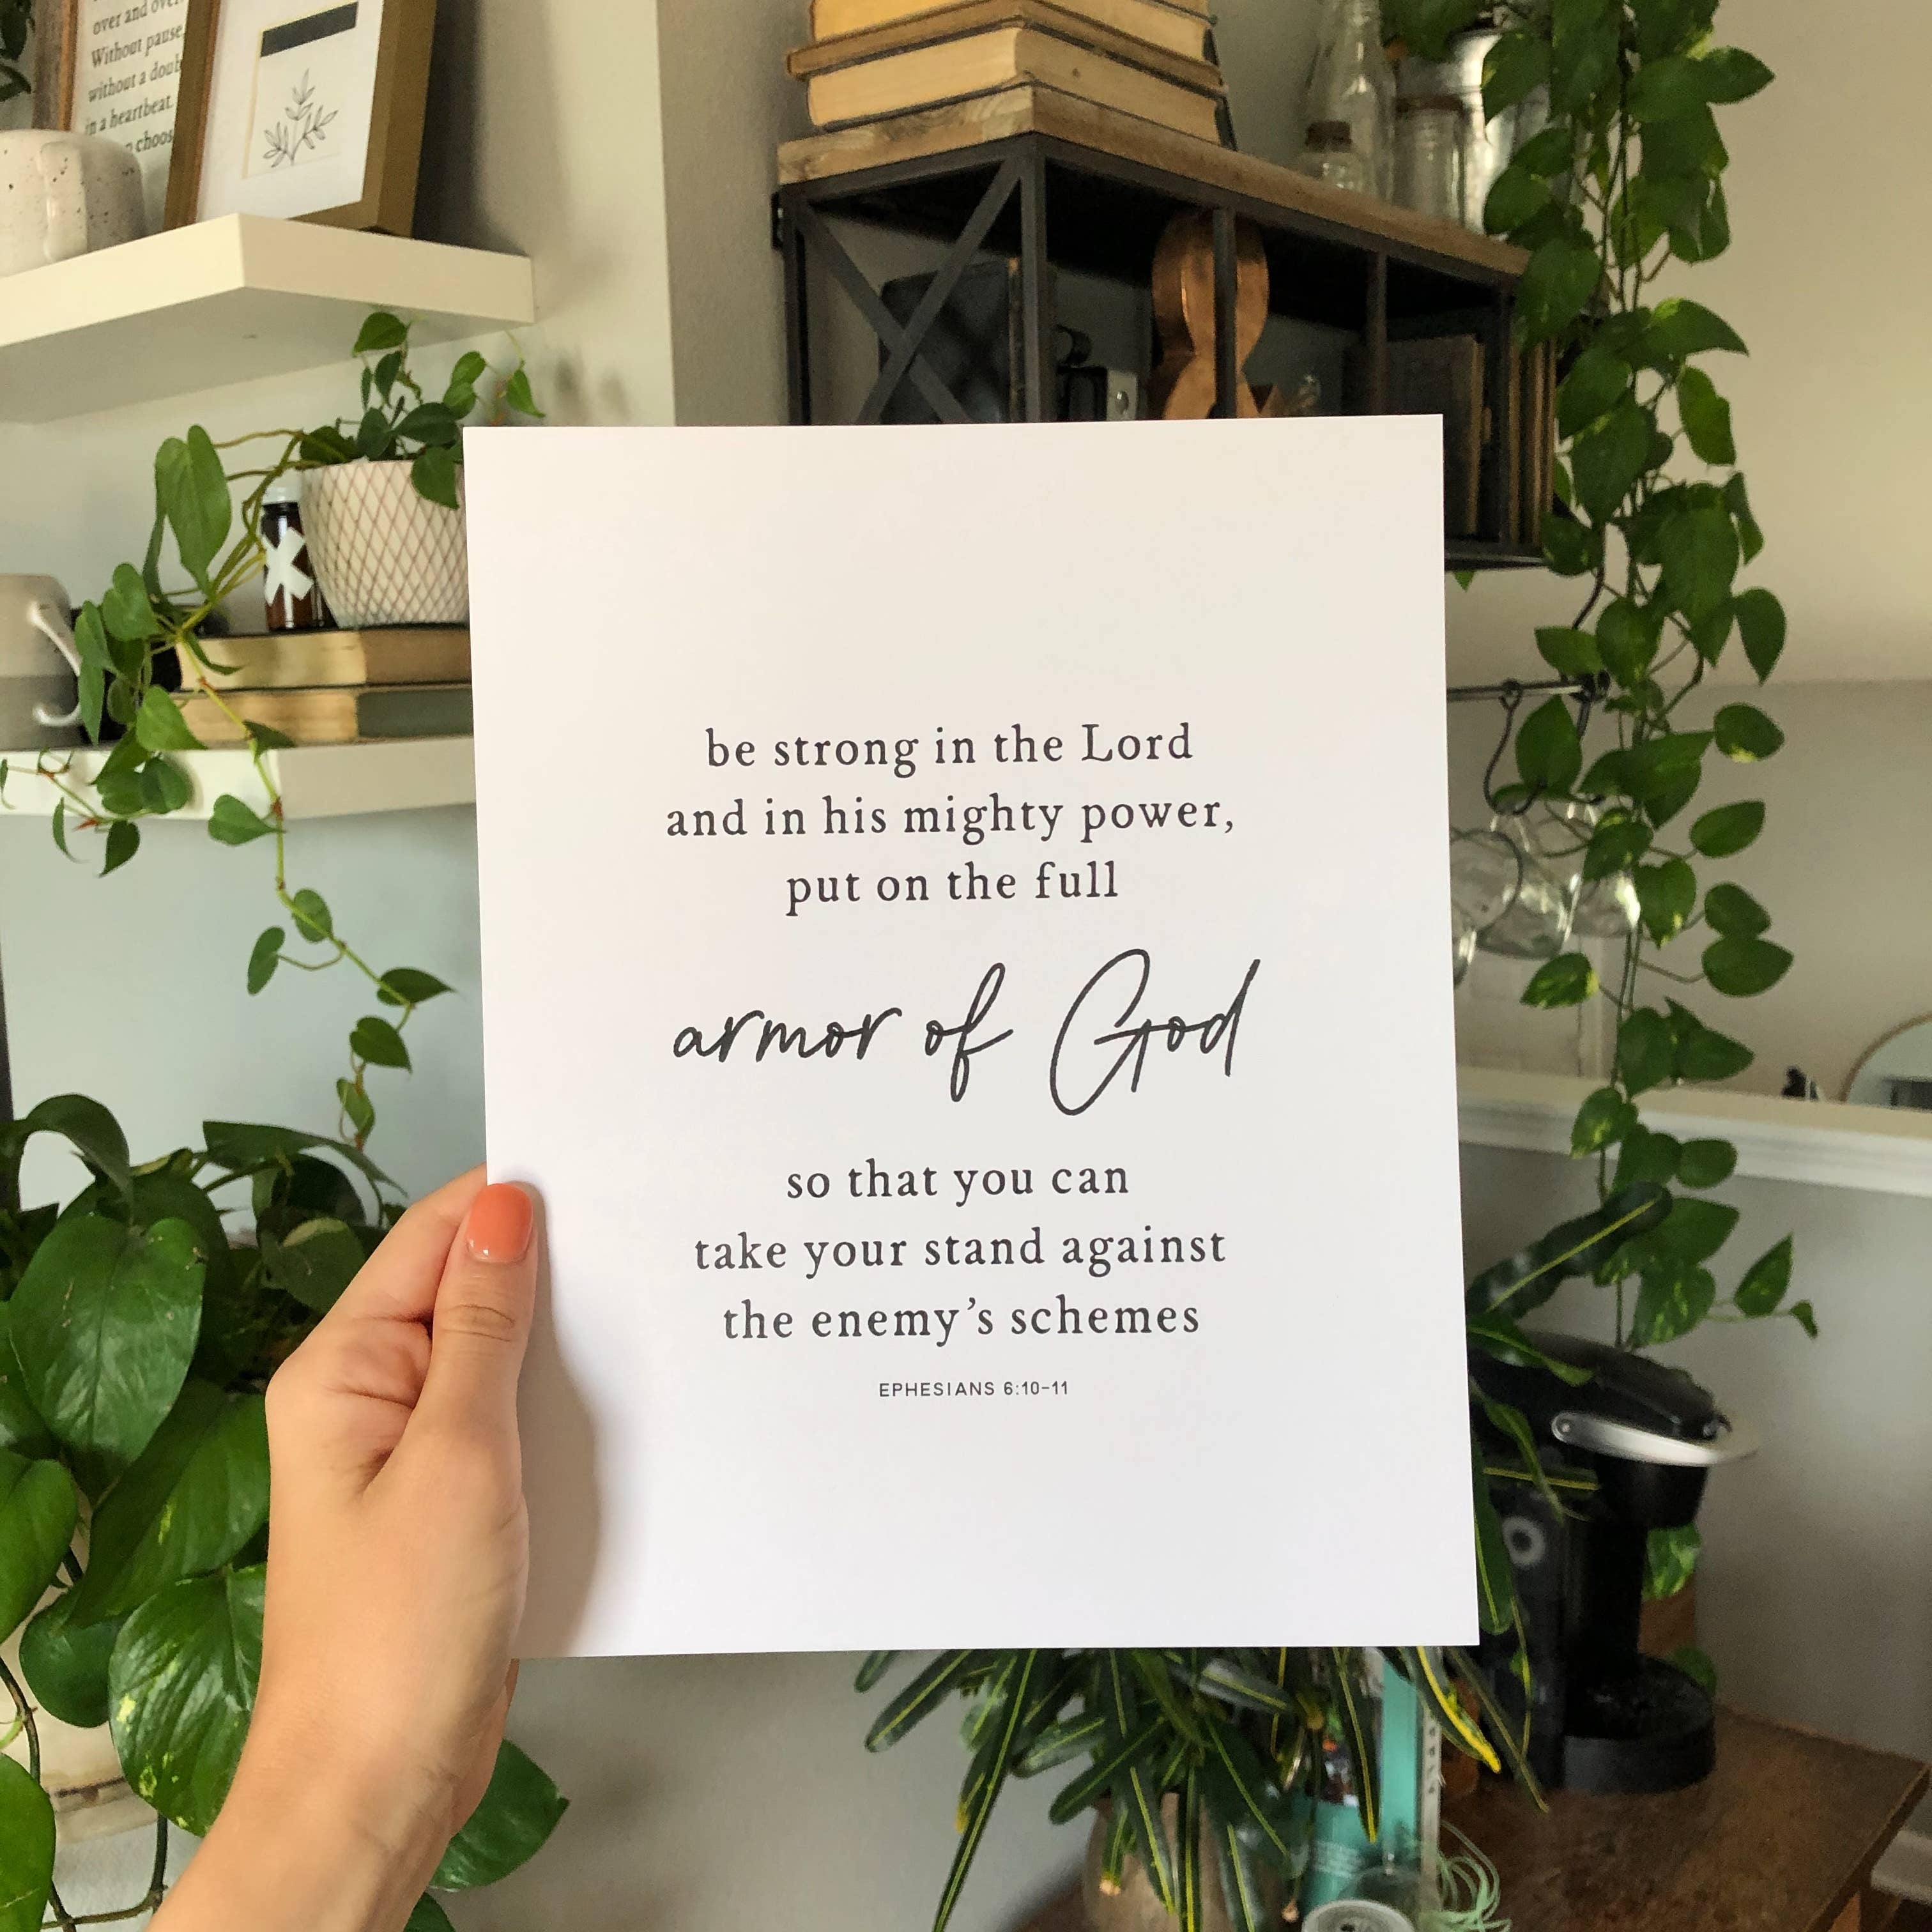 over and over.
Without pause,
without a doubt
in a heartbeat.
choos
be strong in the Lord
and in his mighty power,
put on the full
armor of God
so that you can
take your stand against
the enemy's schemes
EPHESIANS 6:10-11